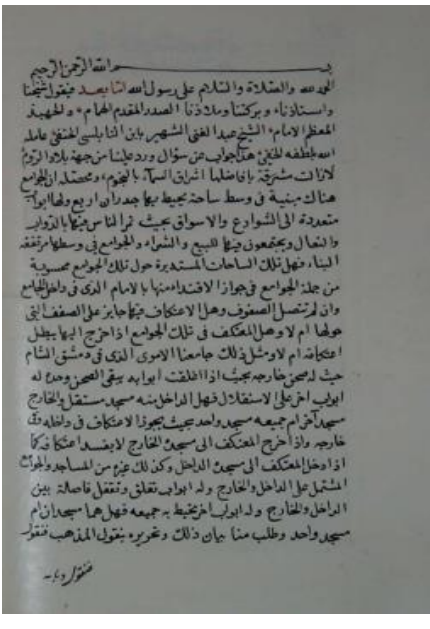 بسم الله الرحمن الرحيم
الحمد لله والصلاة والسلام على رسول الله اما بعد فيقول شيخنا
واستاذنا وبركتنا وملاذنا الصدر المقدم الهمام والجهبذ
المعظم الامام الشيخ عبد الغني الشهير بابن النابلسي الحنفي عامله
الله بلطفه الخفي هذا جواب عن سؤال ورد علينا من جهة بلاد الروم
لازالت مشرقة بافاضلها اشراق السماء بالنجوم ومحصله ان الجوامع
هناك مبنية في وسط ساحة يحيط بها جدران اربع ولها ابواب
متعددة الى الشوارع والاسواق بحيث تمر الناس فيها بالدواب
والنعال ويجتمعون فيها للبيع والشراء والجوامع في وسطها مرتفعة
البناء فهل تلك الساحات المستديرة حول تلك الجوامع محسوبة
من جملة الجوامع في جواز الاقتداء منها بالامام الذي في داخل الجامع
وان لم تتصل الصفوف وهل الاعتكاف فيها جايز على الصفف التي
حولها ام لا وهل المعتكف في تلك الجوامع اذا خرج اليها يبطل
اعتكافه ام لا ومثل ذلك جامعنا الاموي الذي في دمشق الشام
حيث له صحن خارجه بحيث اذا اغلقت ابوابه يبقى الصحن وحده له
ابواب اخر على الاستقلال فهل الداخل منه مسجد مستقل والخارج
مسجد آخر ام جميعه مسجد واحد بحيث يجوز الاعتكاف في داخله وفي
خارجه واذا خرج المعتكف الى مسجده الخارج لا يفسد اعتكافه كما
اذا دخل المعتكف الى مسجده الداخل وكذلك غيره من المساجد والجوامع
المشتمل على الداخل والخارج وله ابواب تغلق وتقفل فاصلة بين
الداخل والخارج وله ابواب اخر تحيط به جميعه فهل هما مسجدان ام
مسجد واحد وطلب منا بيان ذلك وتحريره بنقول المذهب فنقول